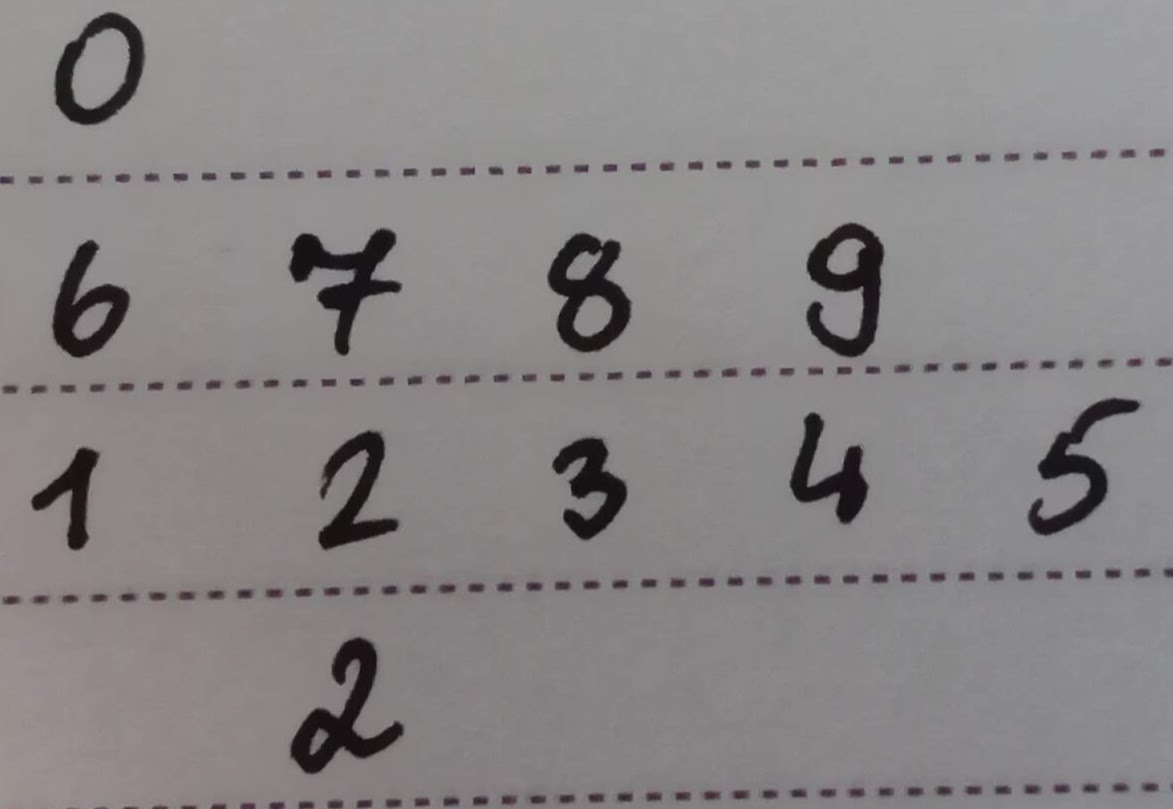 0
6 7 8 9
1 2 3 4 5
2